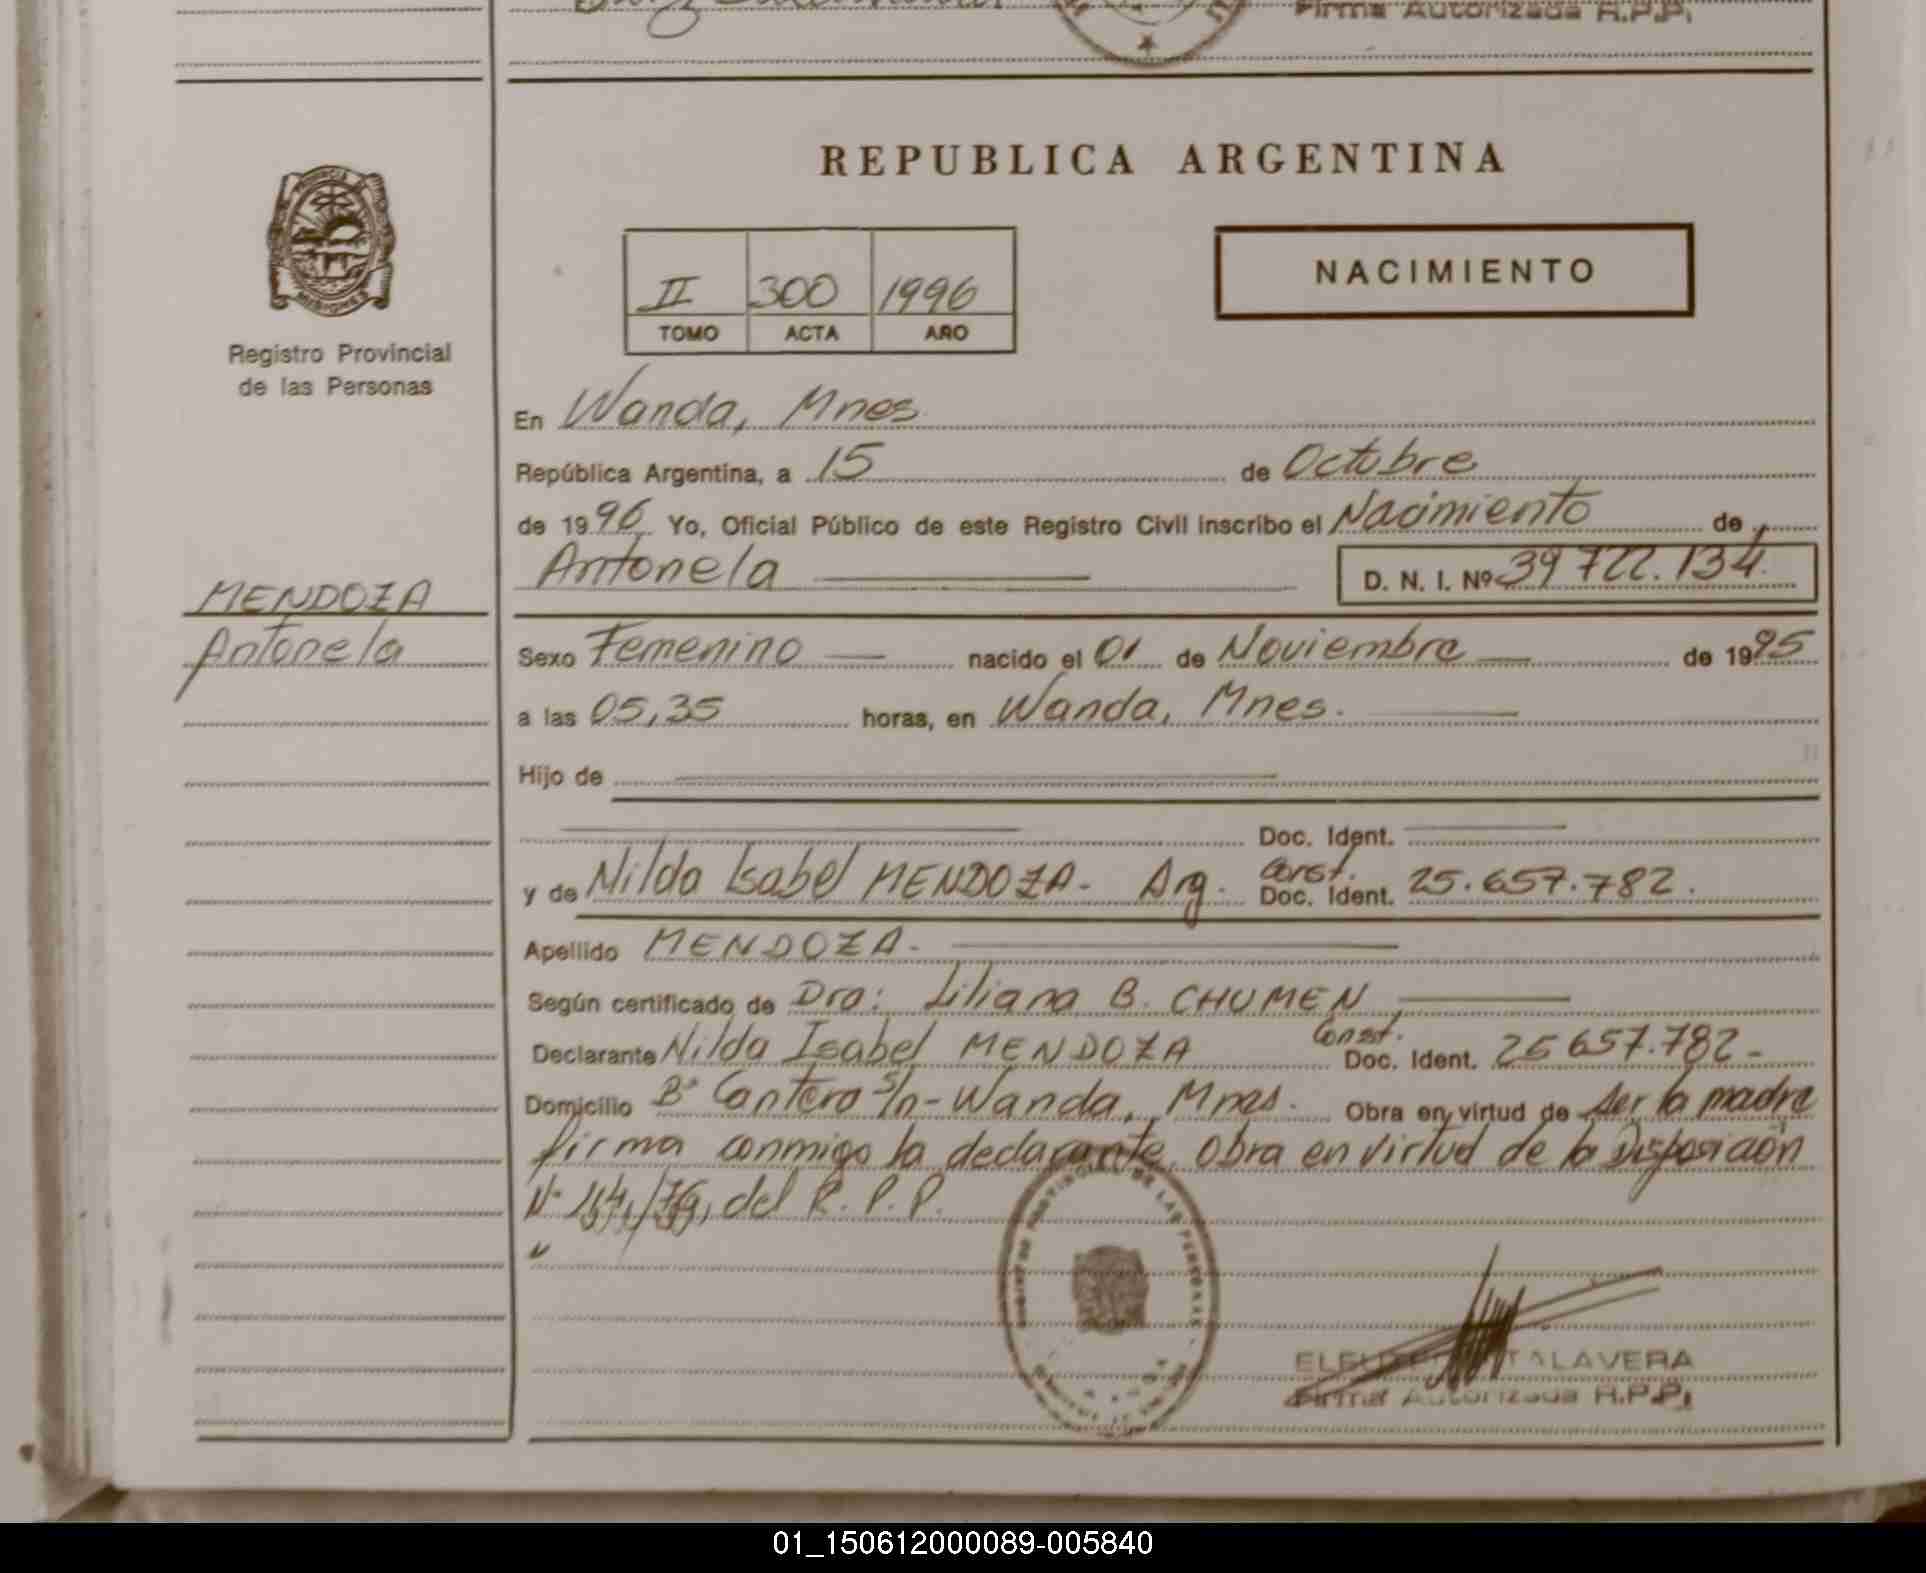 Firma Autorizada R.P.P.
REPUBLICA ARGENTINA
PROVINCIA DE
MISIONES
Registro Provincial
de las Personas
II 300 1996
TOMO ACTA AÑO
NACIMIENTO
En Wanda, Mnes.
República Argentina, a 15 de Octubre
de 1996 Yo, Oficial Público de este Registro Civil inscribo el Nacimiento de
Antonela D. N. I. Nº 39 722.134
MENDOZA
Antonela
Sexo Femenino nacido el 01 de Noviembre de 1995
a las 05,35 horas, en Wanda, Mnes.
Hijo de
Doc. Ident.
y de Nilda Isabel MENDOZA. Arg. Const. Doc. Ident. 25.657.782.
Apellido MENDOZA.
Según certificado de Dra: Liliana B. CHUMEN
Declarante Nilda Isabel MENDOZA Const. Doc. Ident. 25 657.782-
Domicilio Bº Cantera s/n - Wanda, Mnes. Obra en virtud de ser la madre
firma conmigo la declarante, Obra en virtud de la Disposición
Nº del R.P.P.
TALAVERA
Firma Autorizada R.P.P.
01_150612000089-005840